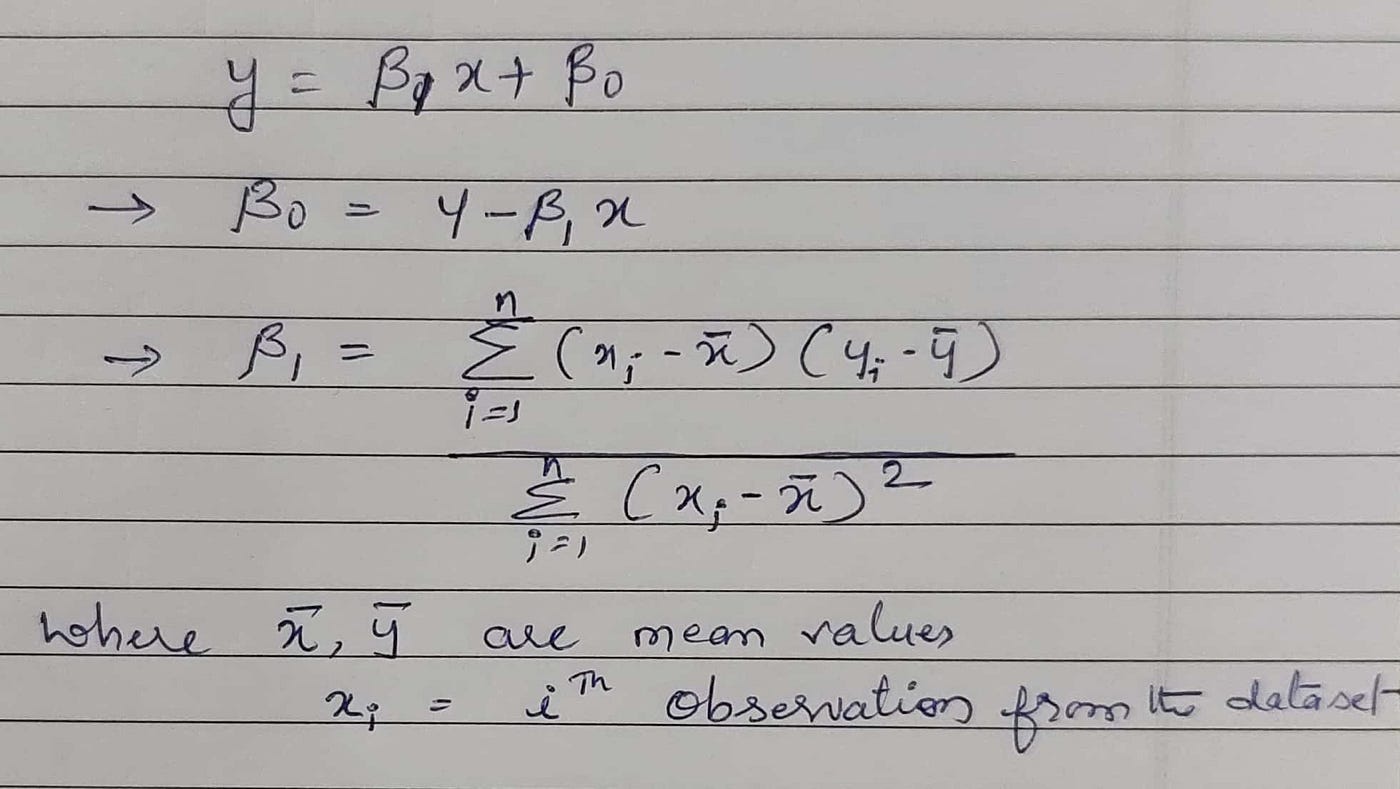 y = β₁ x + β₀
→ β₀ = y - β₁ x
→ β₁ = n∑i=1 (xᵢ - x̄) (yᵢ - ȳ)
n∑i=1 (xᵢ - x̄)²
where x̄, ȳ are mean values
xᵢ = iᵗʰ observation from the dataset